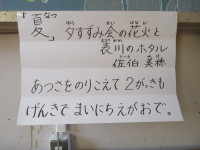 「夏」夕すずみ会の花火と
川のホタル
佐伯 美穂
あつさをのりこえて2がっきも
げんきでまいにちえがおで。